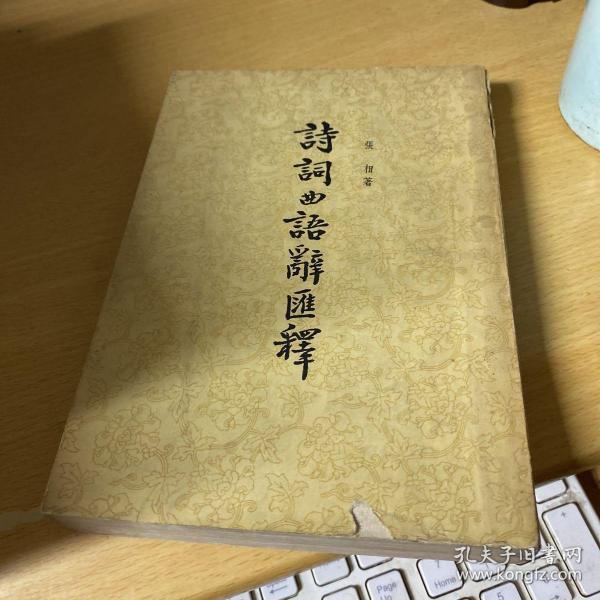 張相著
詩詞曲語辭匯釋
Page Up
孔夫子旧书网
www.kongfz.com